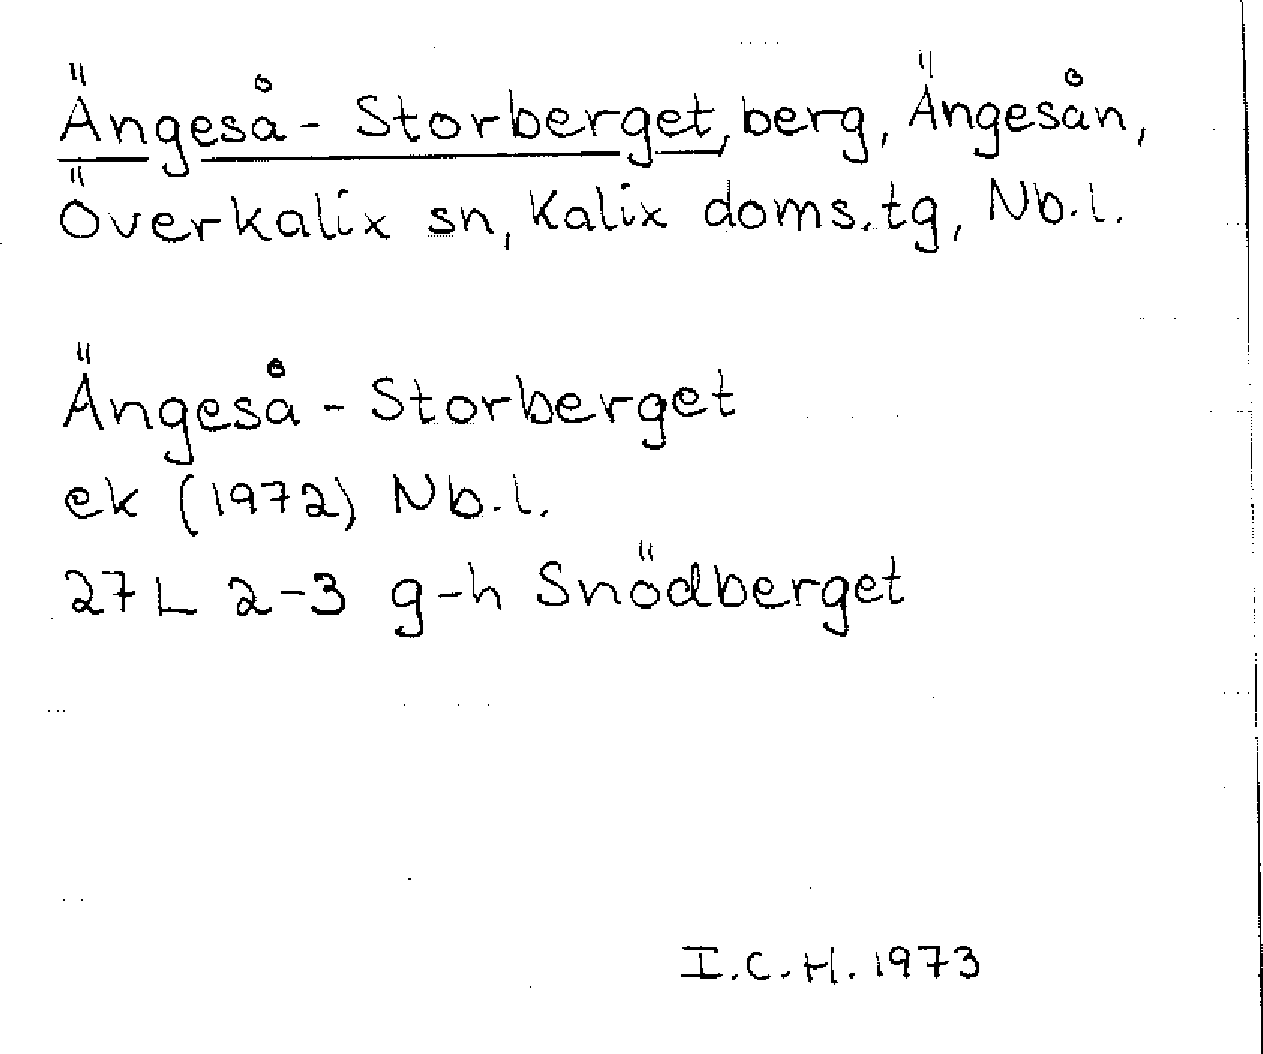 Ängeså - Storberget, berg, Ängesån,
Överkalix sn, Kalix doms.tg, Nb.l.
Ängeså - Storberget
ek (1972) Nb.l.
27 L 2-3 g-h Snödberget
I.C.H. 1973